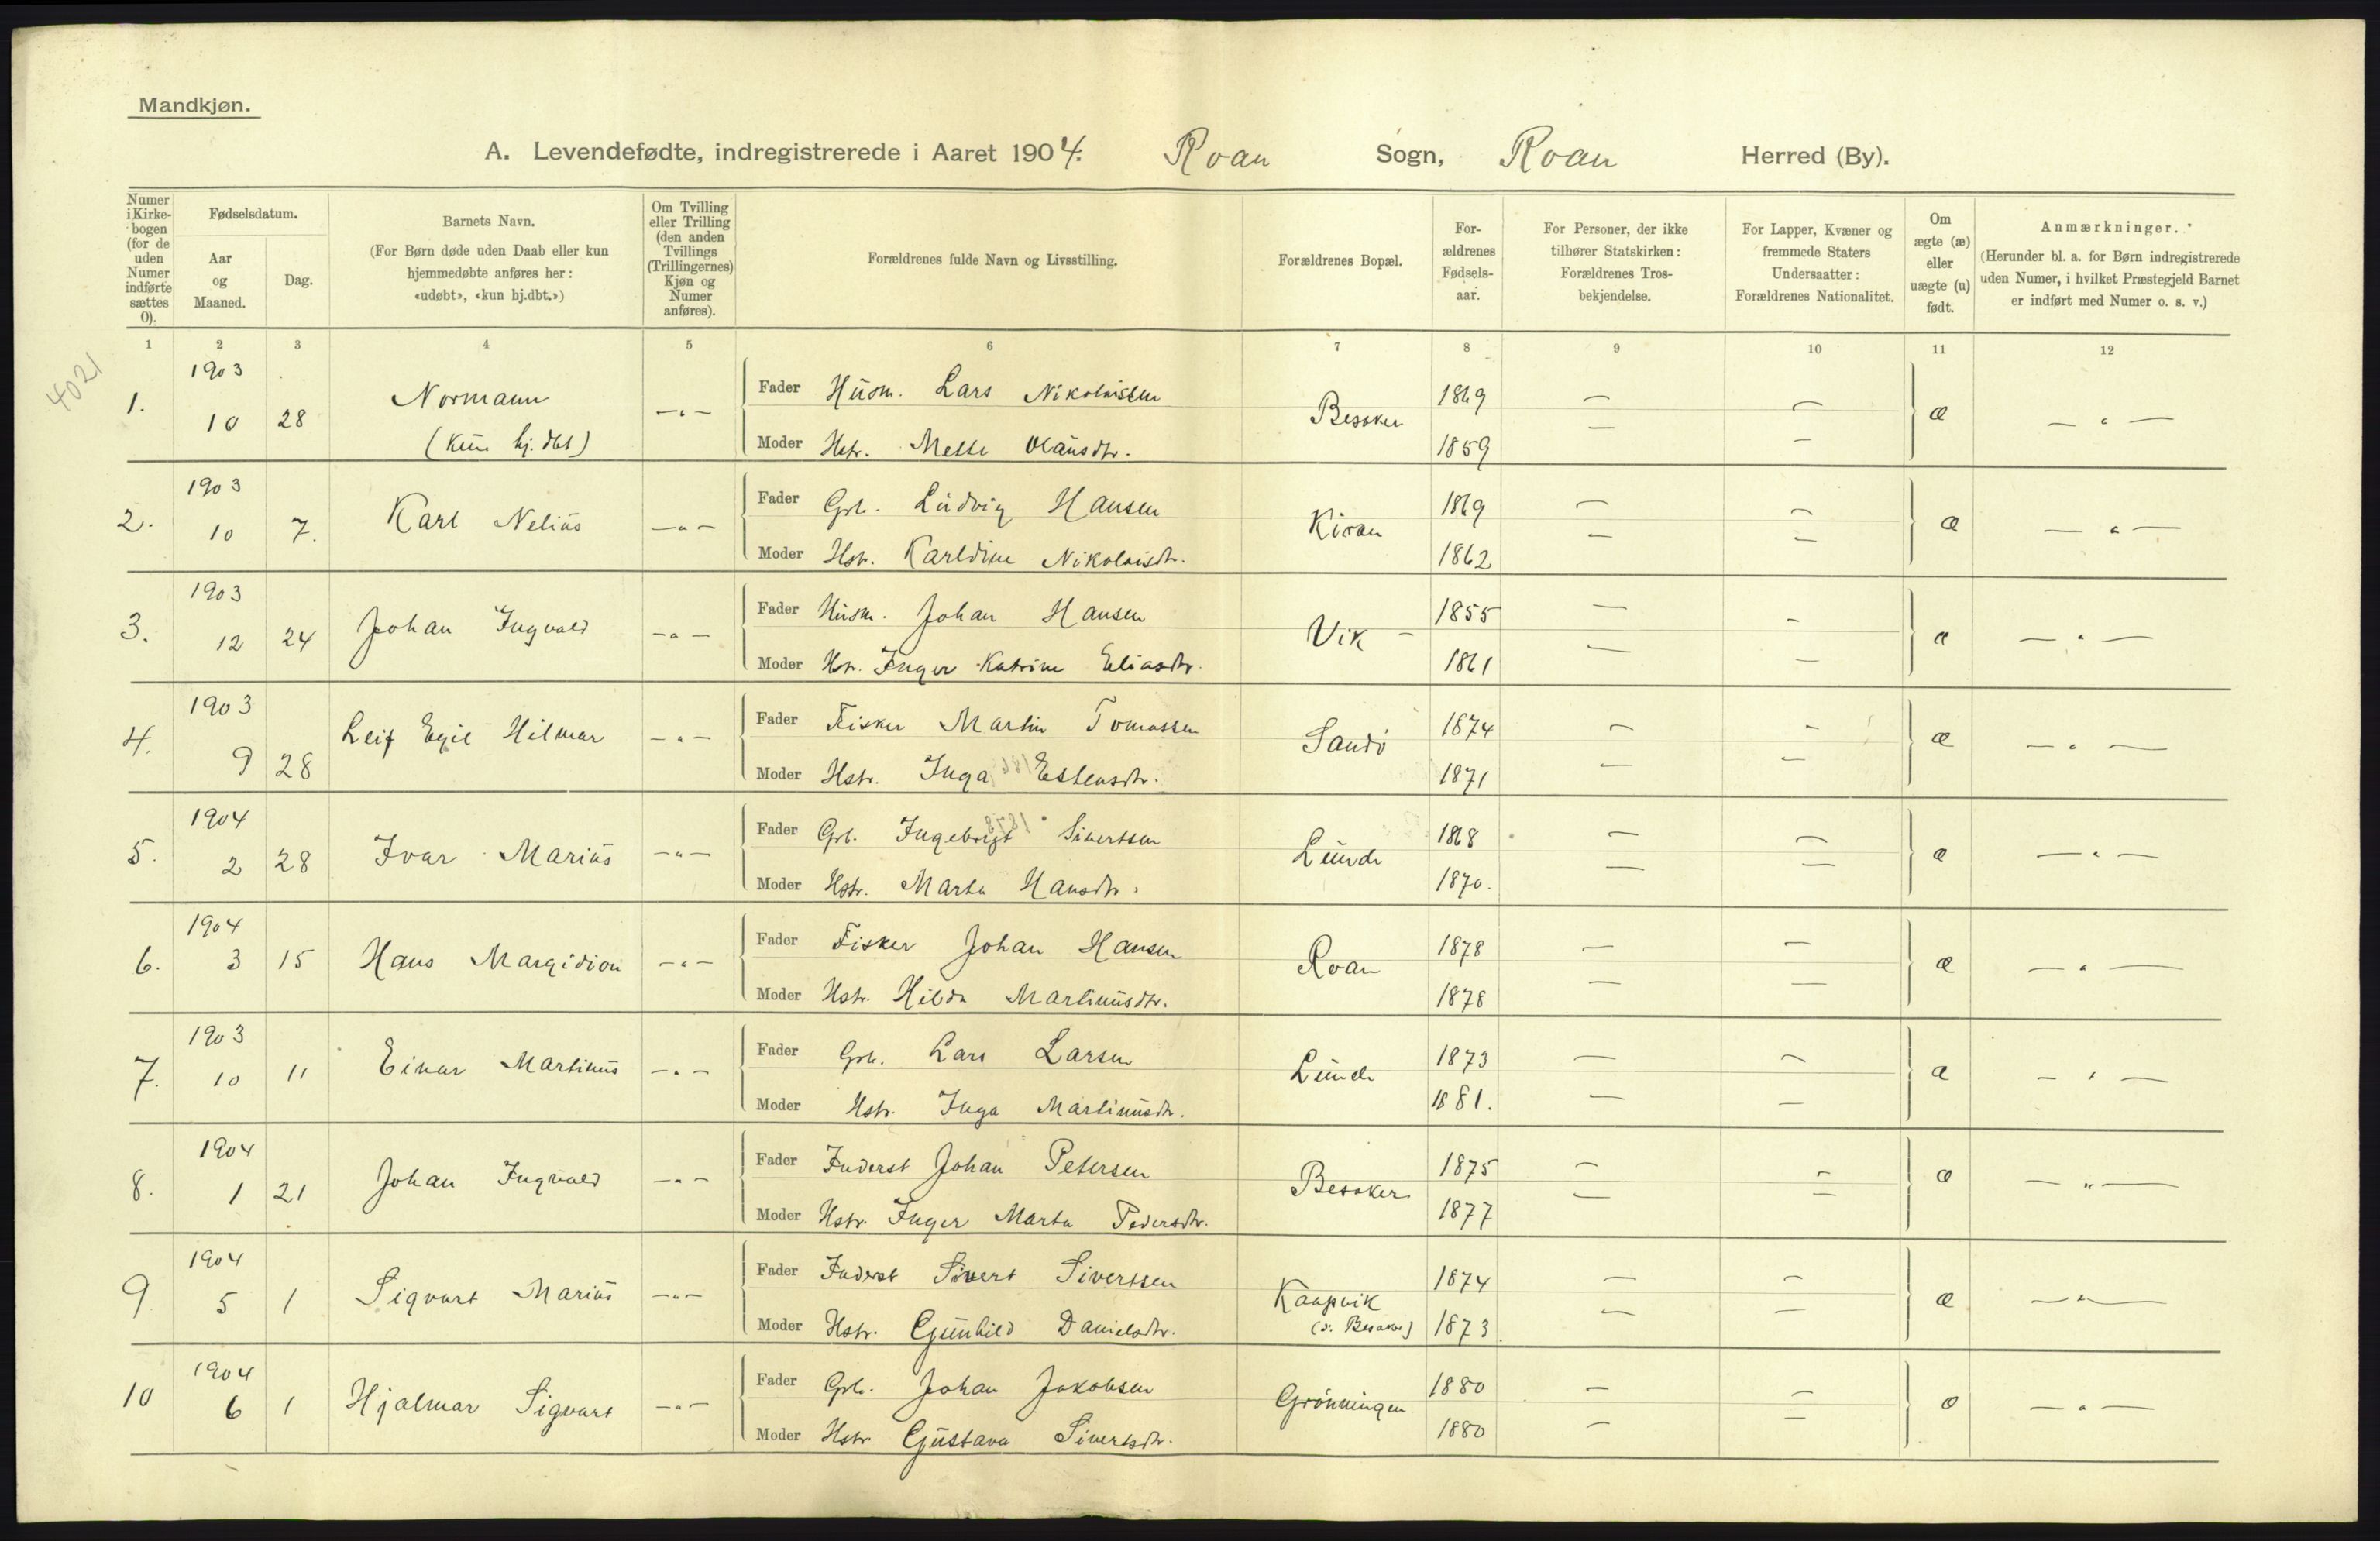 Mandkjøn.
A. Levendefødte, indregistrerede i Aaret 1904. Roan Sogn, Roan Herred (By).
Numer i Kirkebogen (for de uden Numer indførte sættes 0).
Fødselsdatum.
Aar og Maaned.
Dag.
Barnets Navn.
(For Børn døde uden Daab eller kun hjemmedøbte anføres her: «udøbt», «kun hj.dbt.»)
Om Tvilling eller Trilling (den anden Tvillings (Trillingernes) Kjøn og Numer anføres).
Forældrenes fulde Navn og Livsstilling.
Forældrenes Bopæl.
Forældrenes Fødselsaar.
For Personer, der ikke tilhører Statskirken: Forældrenes Trosbekjendelse.
For Lapper, Kvæner og fremmede Staters Undersaatter: Forældrenes Nationalitet.
Om ægte (æ) eller uægte (u) født.
Anmærkninger.
(Herunder bl. a. for Børn indregistrerede uden Numer, i hvilket Præstegjeld Barnet er indført med Numer o. s. v.)
1 2 3 4 5 6 7 8 9 10 11 12
4021
1. 1903 10 28 Normann (kun hj. dbt) —"— Fader Husm. Lars Nikolaisen Bessker 1869 — — æ —"—
Moder Hstr. Mette Olausdtr. 1859 — —
2. 1903 10 7. Karl Nelius —"— Fader Grb. Ludvig Hansen Kiran 1869 — — æ —"—
Moder Hstr. Karldine Nikolaisdtr. 1862 — —
3. 1903 12 24 Johan Ingvald —"— Fader Husm. Johan Hansen Vik — 1855 — — æ —"—
Moder Hstr. Inger Katrine Eliasdtr. 1861 — —
4. 1903 9 28 Leif Egil Hilmar —"— Fader Fisker Martin Tomassen Sandö 1874 — — æ —"—
Moder Hstr. Inga Estensdtr. 1871 — —
5. 1904 2 28 Ivar Marius —"— Fader Grb. Ingebrigt Sivertsen Lunde 1868 — — æ —"—
Moder Hstr. Marta Hansdtr. 1870. — —
6. 1904 3 15 Hans Margidion —"— Fader Fisker Johan Hansen Roan 1878 — — æ —"—
Moder Hstr. Hilda Martinusdtr. 1878 — —
7. 1903 10 11 Einar Martinus —"— Fader Grb. Lars Larsen Lunde 1873 — — æ —"—
Moder Hstr. Inga Martinusdtr. 1881. — —
8. 1904 1 21 Johan Ingvald —"— Fader Inderst Johan Petersen Bessker 1875 — — æ —"—
Moder Hstr. Inger Marta Pedersdtr. 1877 — —
9 1904 5 1 Sigvart Marius —"— Fader Inderst Sivert Sivertsen Kaapvik 1874 — — æ —"—
Moder Hstr. Gunhild Danielsdtr. 1873 — —
10 1904 6 1 Hjalmar Sigvart —"— Fader Grb. Johan Jakobsen Grönningen 1880 — — æ —"—
Moder Hstr. Gustava Sivertsdtr. 1880 — —